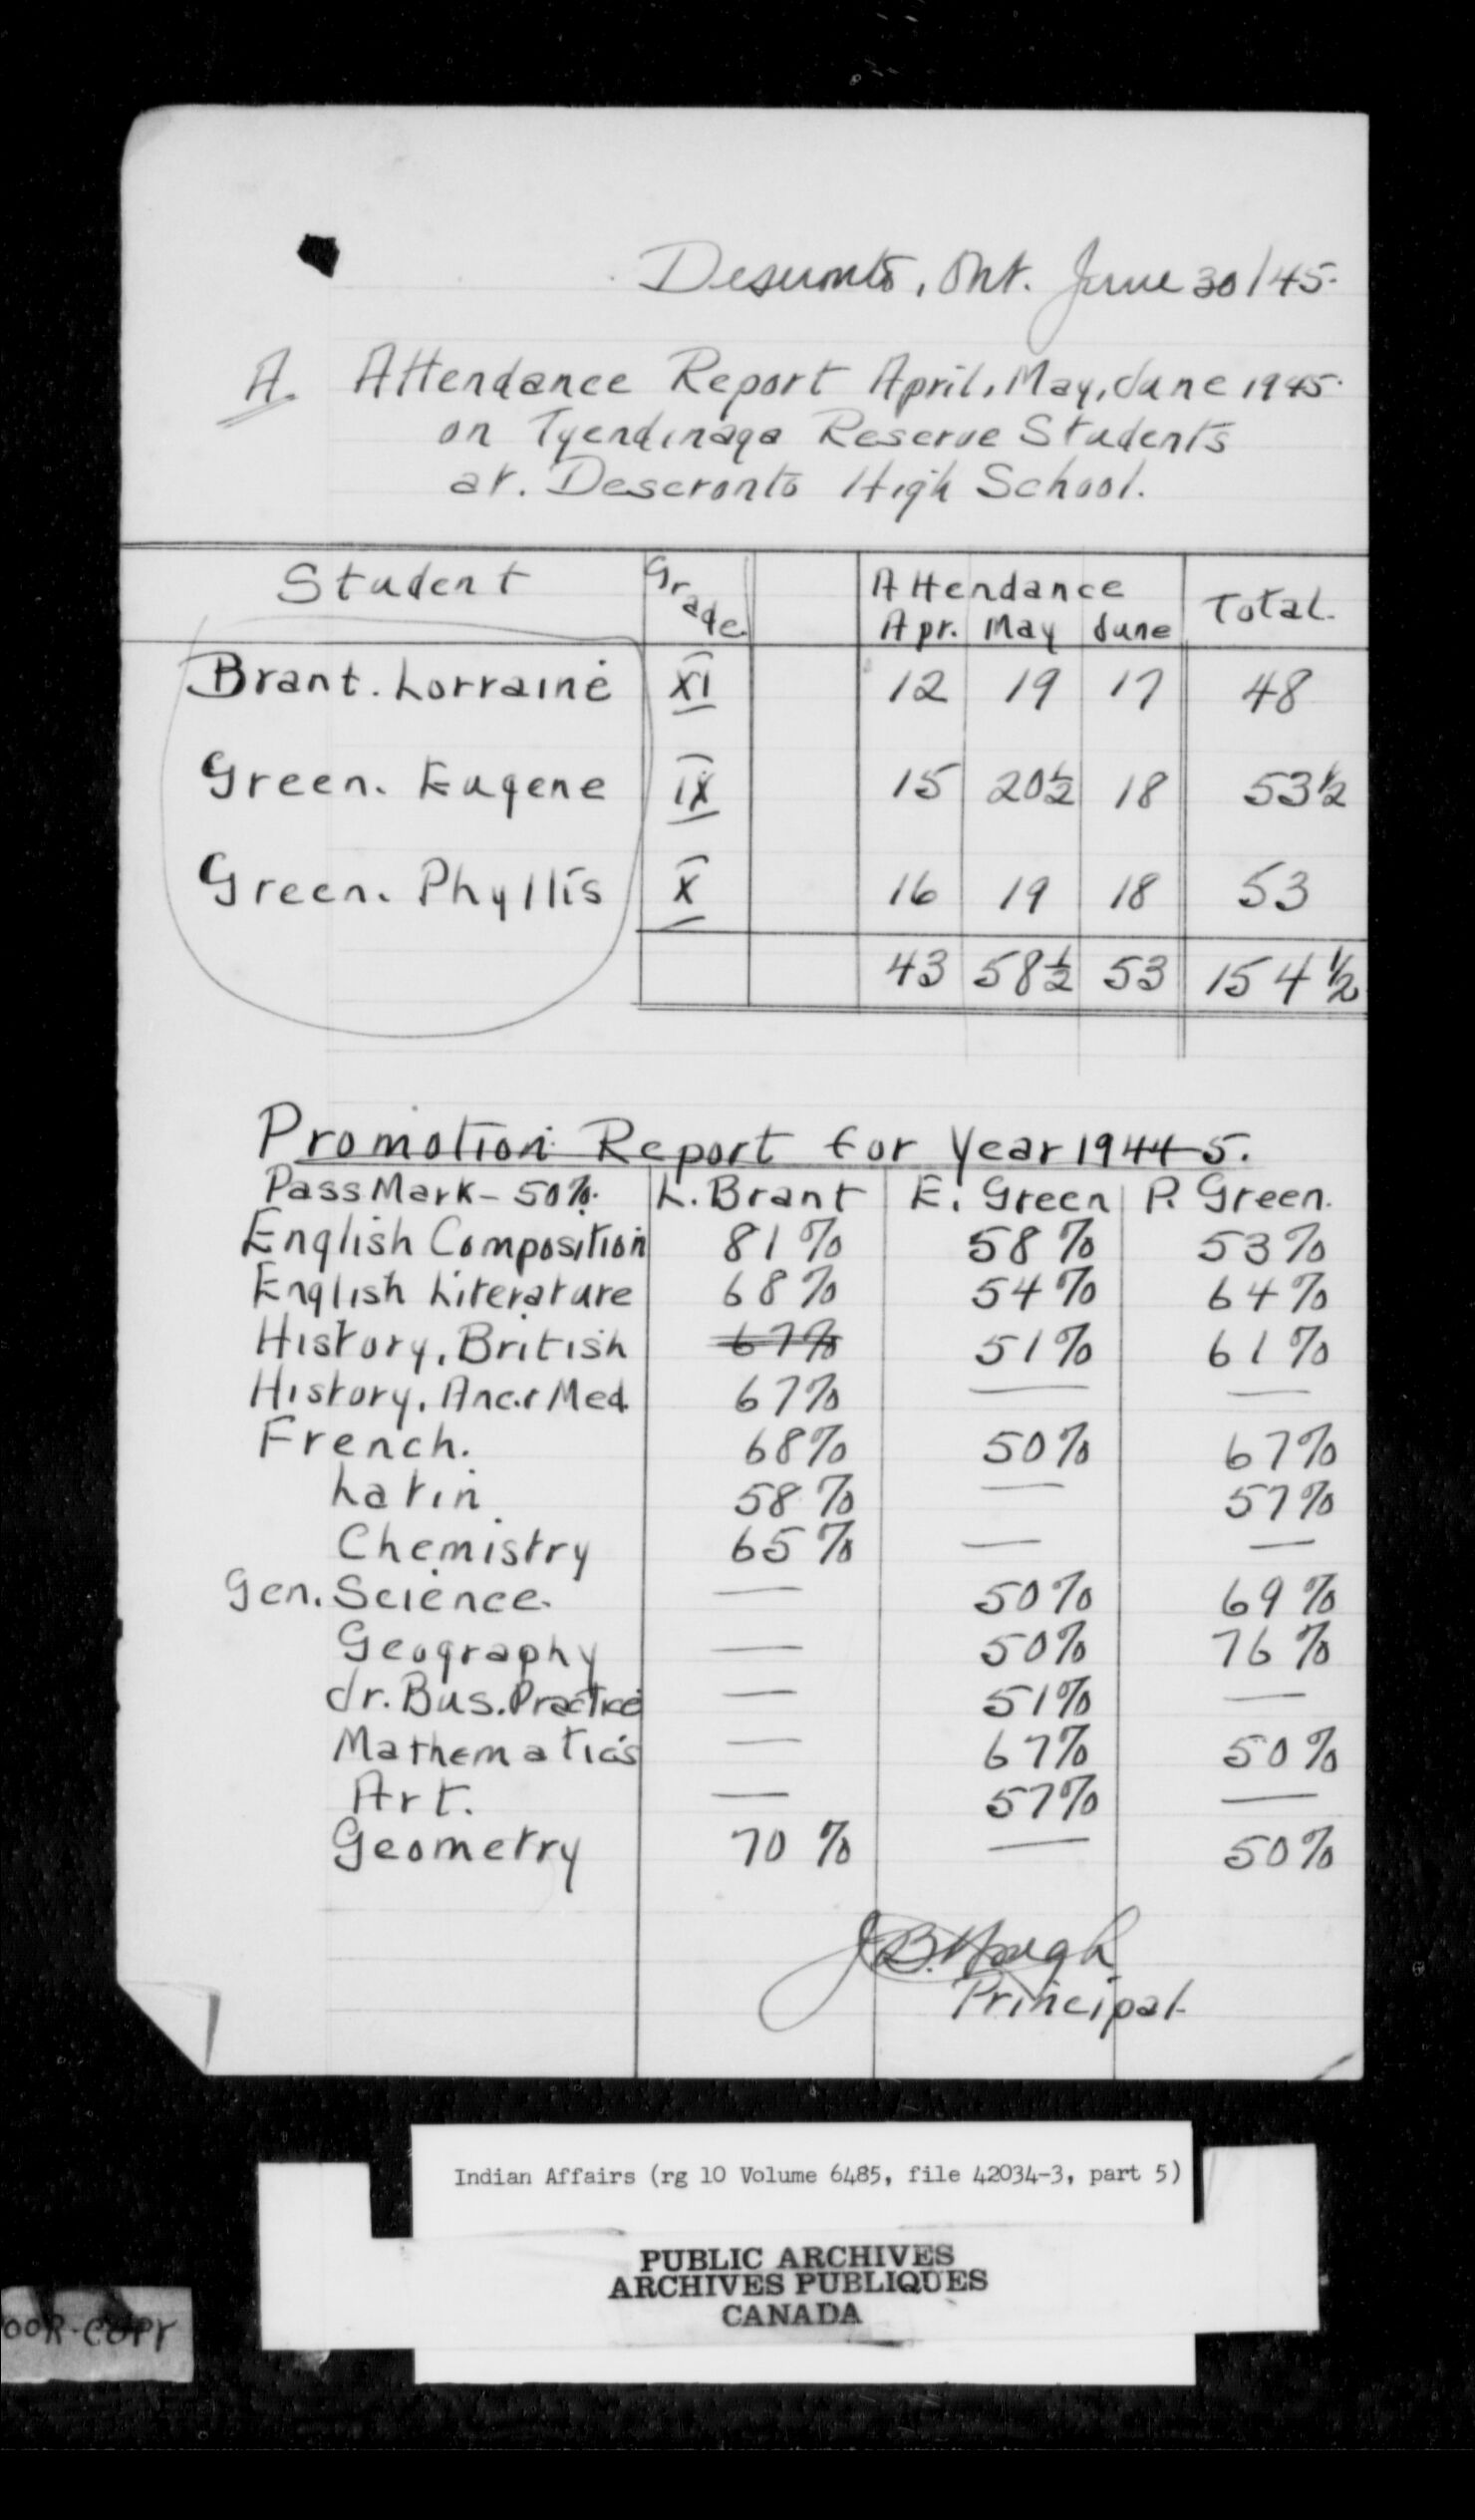 Deseronto, Ont. June 30/45.
A. Attendance Report April, May, June 1945.
on Tyendinaga Reserve Students
at. Deseronto High School.
Student Grade Attendance Total.
Apr. May June
Brant. Lorraine XI 12 19 17 48
Green. Eugene IX 15 20½ 18 53½
Green. Phyllis X 16 19 18 53
43 58½ 53 154½
Promotion Report for Year 1944-5.
Pass Mark - 50%. L. Brant E. Green P. Green.
English Composition 81% 58% 53%
English Literature 68% 54% 64%
History, British 67% 51% 61%
History, Anc. & Med. 67% — —
French. 68% 50% 67%
Latin 58% — 57%
Chemistry 65% — —
Gen. Science. — 50% 69%
Geography — 50% 76%
Jr. Bus. Practice — 51% —
Mathematics — 67% 50%
Art. — 57% —
Geometry 70% — 50%
J.B. Hough
Principal.
Indian Affairs (rg 10 Volume 6485, file 42034-3, part 5)
PUBLIC ARCHIVES
ARCHIVES PUBLIQUES
CANADA
OOR COPY